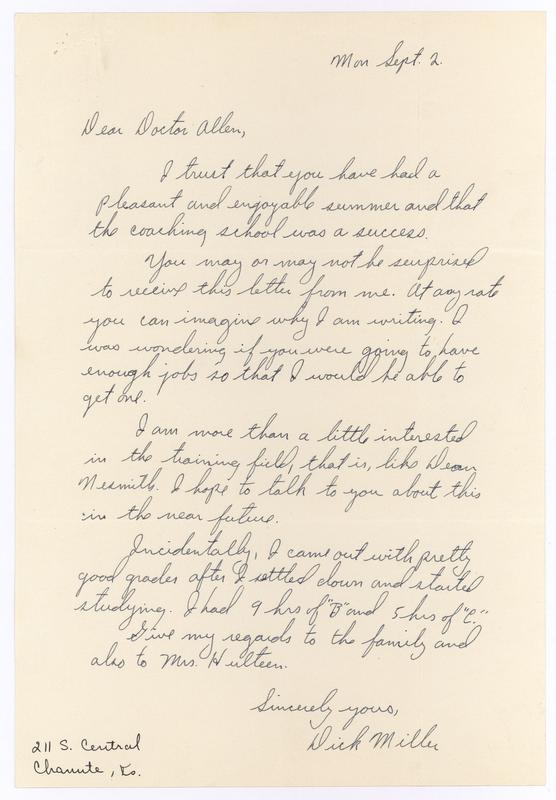 Mon Sept. 2.
Dear Doctor Allen,
I trust that you have had a
pleasant and enjoyable summer and that
the coaching school was a success.
You may or may not be surprised
to receive this letter from me. At any rate
you can imagine why I am writing. I
was wondering if you were going to have
enough jobs so that I would be able to
get one.
I am more than a little interested
in the training field, that is, like Dean
Nesmith. I hope to talk to you about this
in the near future.
Incidentally, I came out with pretty
good grades after I settled down and started
studying. I had 9 hrs of "B" and 5 hrs of "C."
Give my regards to the family and
also to Mrs. Hulteen.
Sincerely yours,
Dick Miller
211 S. Central
Chanute, Ks.